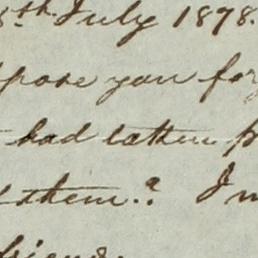 8th July 1878.
pose you for
had latten
them.? I
friends